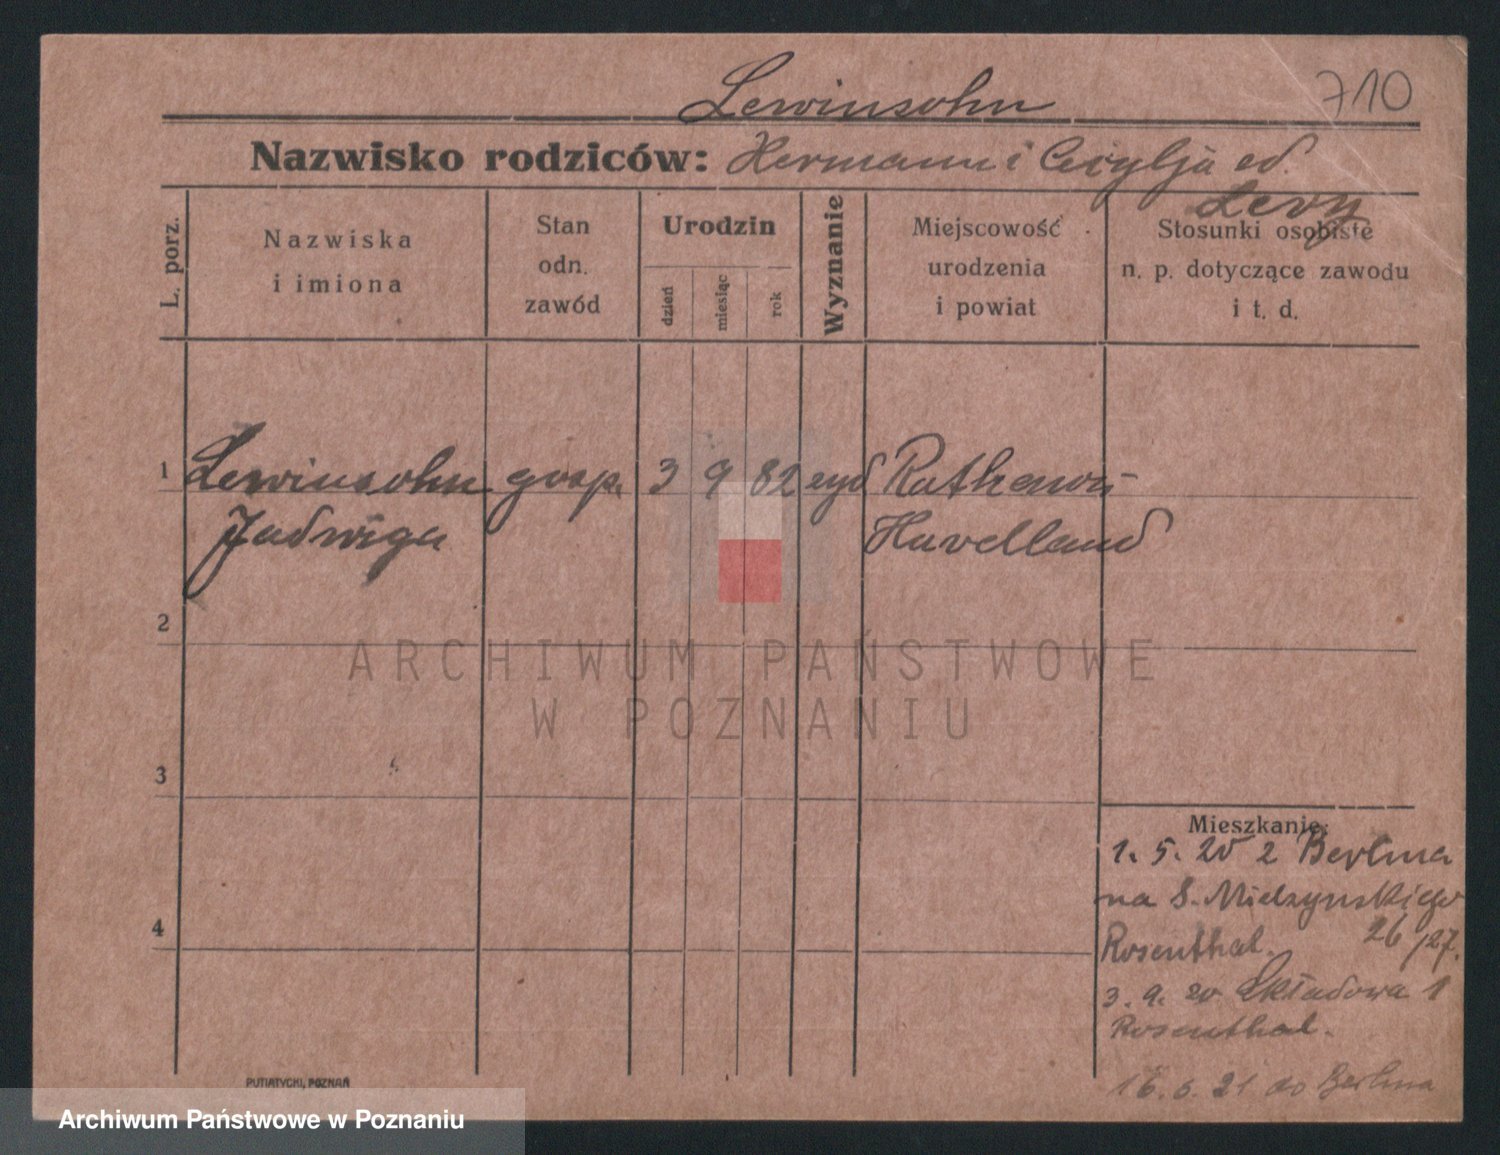 Lewinsohn
710
Nazwisko rodziców: Hermann i Cecylja od.
Levy
L. porz.
Nazwiska
i imiona
Stan
odn.
zawód
Urodzin
dzień
miesiąc
rok
Wyznanie
Miejscowość
urodzenia
i powiat
Stosunki osobiste
n. p. dotyczące zawodu
i t. d.
1 Lewinsohn gosp. 3 9 82 żyd Rathenow
Jadwiga Havelland
2
ARCHIWUM PAŃSTWOWE
W POZNANIU
3
Mieszkanie:
1. 5. 20 z Berlina
na S. Mielzynskiego
Rosenthal. 26/27.
4
3. 9. 20 Składowa 1
Rosenthal.
16. 6. 21 do Berlina
PUTIATYCKI, POZNAŃ
Archiwum Państwowe w Poznaniu